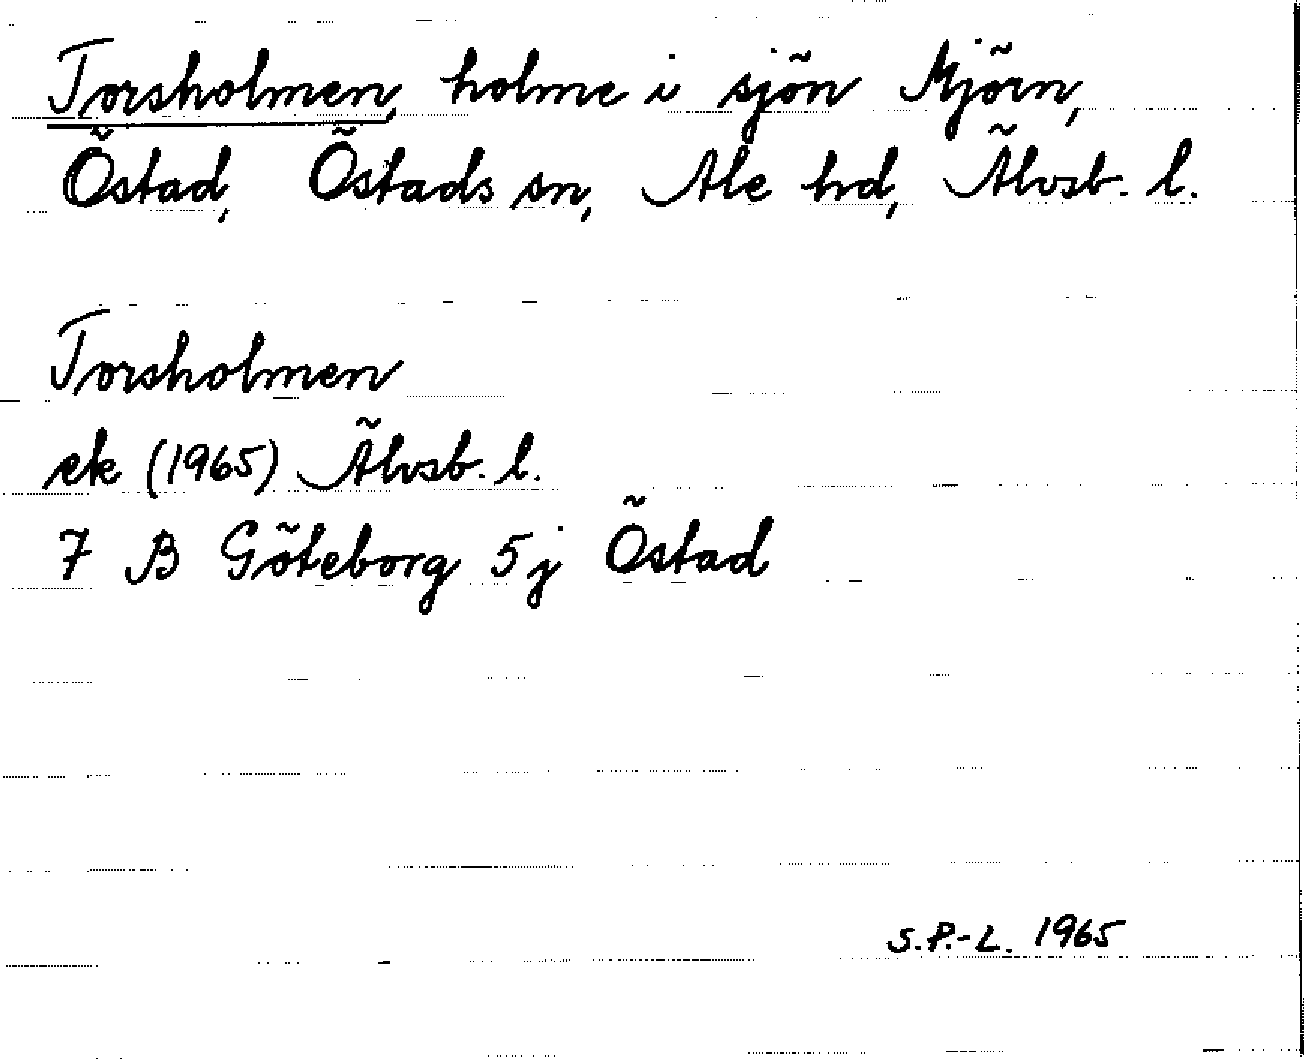 Torsholmen, holme i sjön Mjörn,
Östad, Östads sn, Ale hd, Älvsb. l.
Torsholmen
ek (1965) Älvsb. l.
7 B Göteborg 5j Östad
S.P.-L. 1965